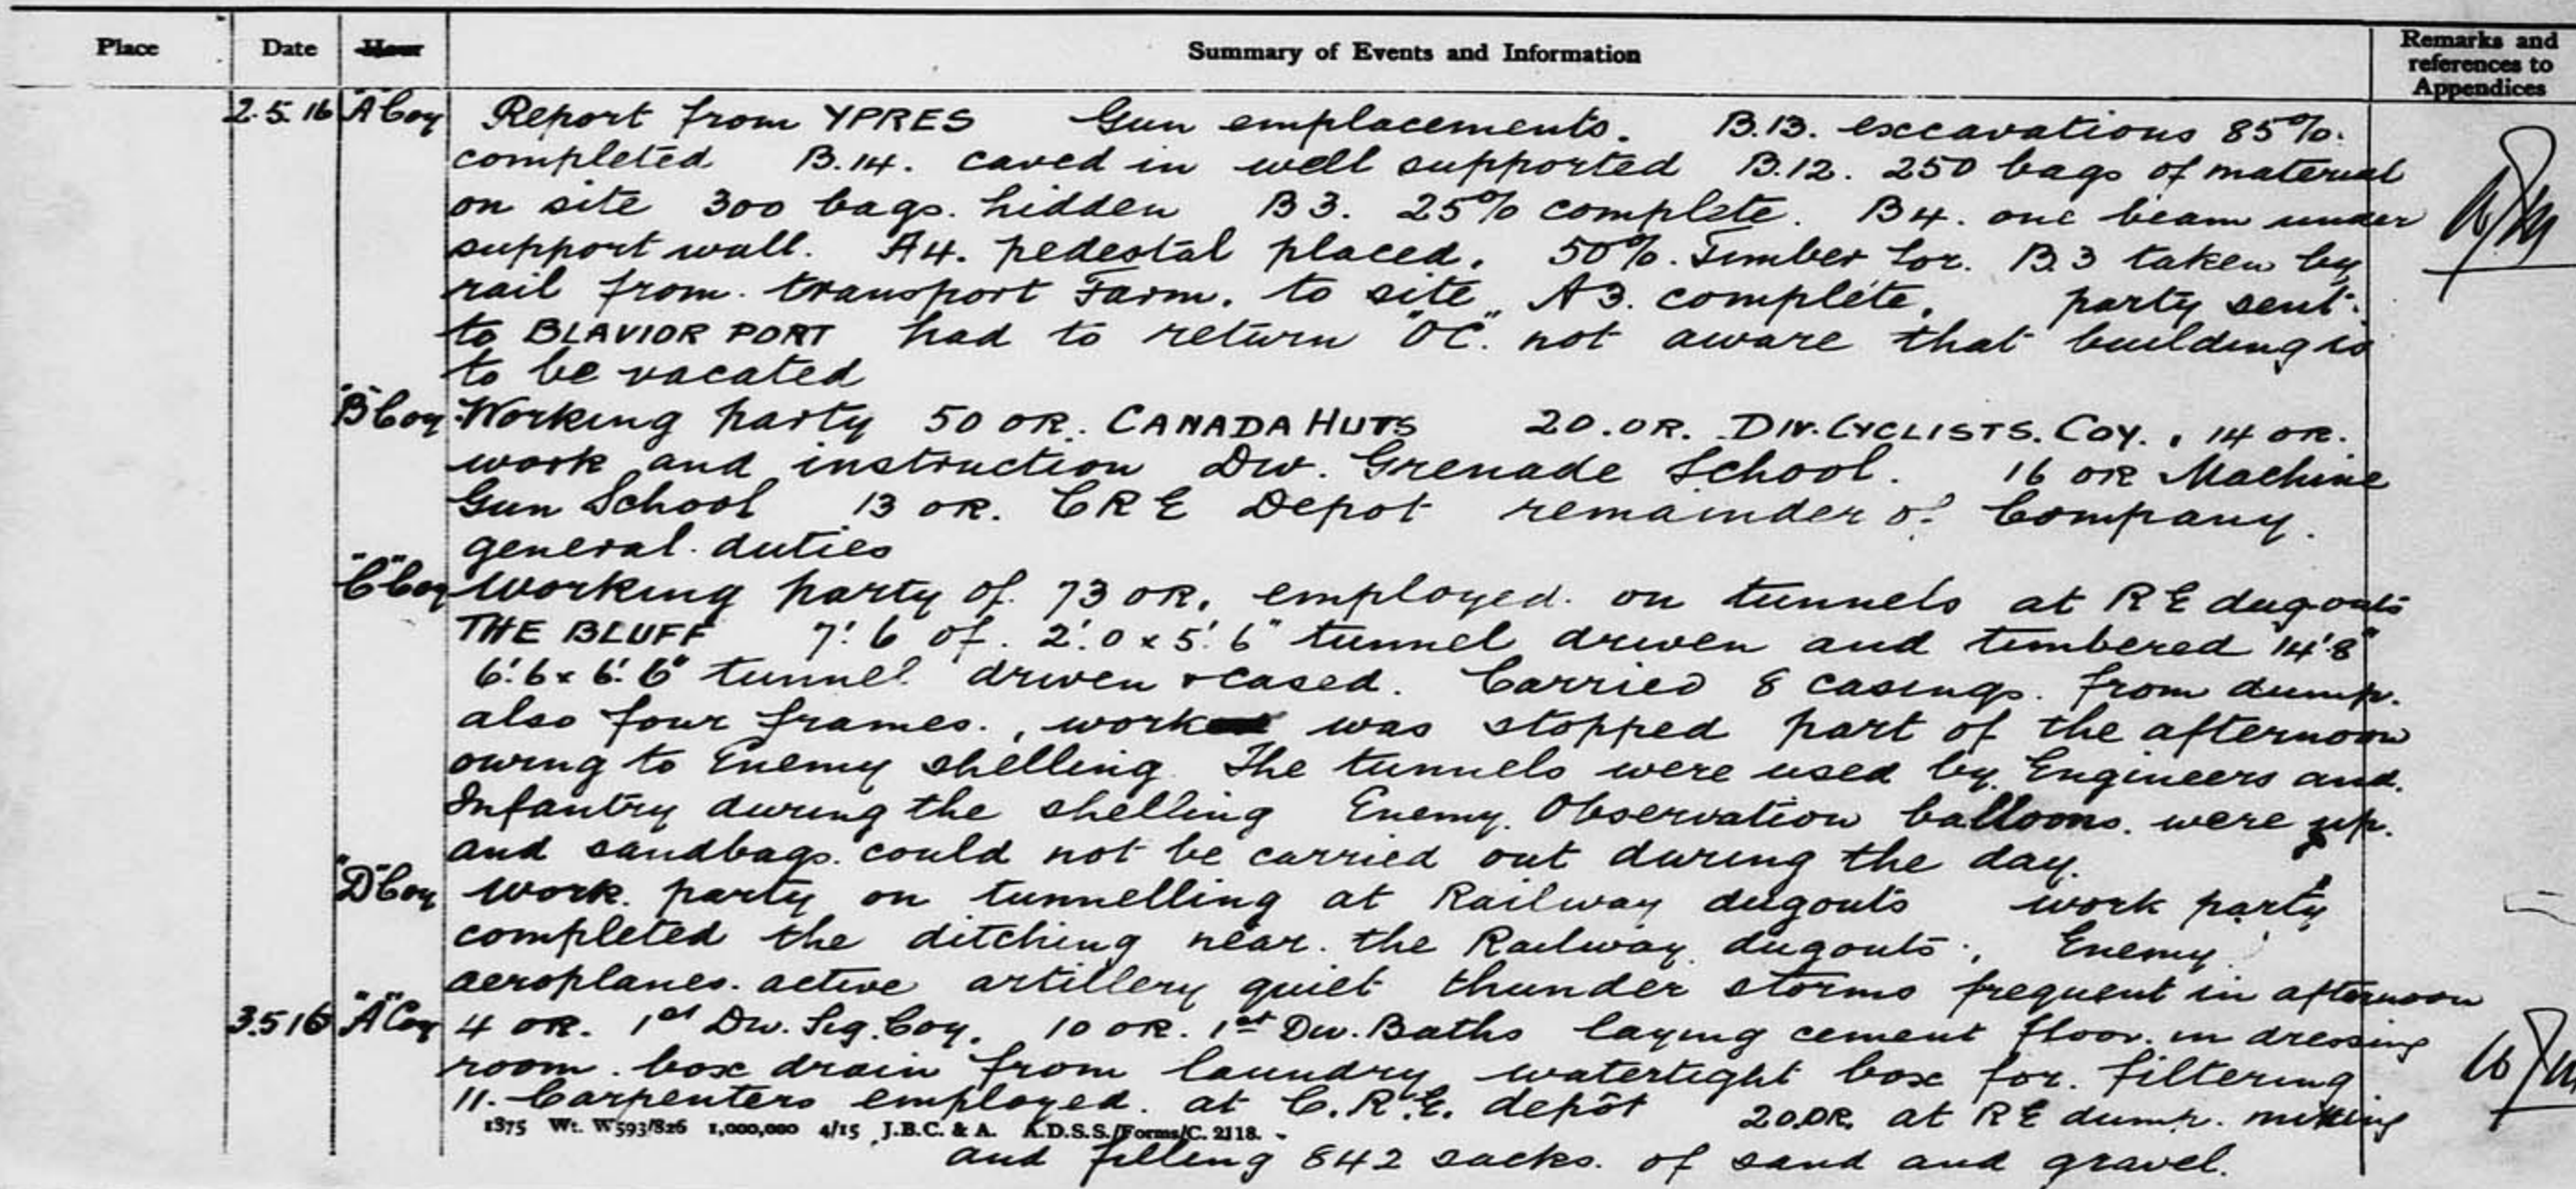 Place Date Hour Summary of Events and Information Remarks and references to Appendices
2.5.16 "A" Coy Report from YPRES Gun emplacements. B.13. excavations 85%.
completed B.14. caved in well supported B.12. 250 bags of material
on site 300 bags. hidden B3. 25% complete. B4. one beam under
support wall. A4. pedestal placed. 50%. Timber for. B.3 taken by
rail from. transport Farm. to site A3. complete. party sent.
to BLAVIOR PORT had to return "OC". not aware that building is
to be vacated
"B" Coy Working party 50 OR. CANADA HUTS 20.OR. DIV. CYCLISTS. COY. , 14 OR.
work and instruction Div. Grenade School. 16 OR Machine
Gun School 13 OR. CRE Depot remainder of Company.
general. duties
"C" Coy Working party of. 73 OR. employed. on tunnels at RE dugouts
THE BLUFF 7'.6 of. 2'.0 x 5'.6" tunnel driven and timbered 14'.8"
6'.6 x 6'.6" tunnel driven & cased. Carried 8 casings. from dump.
also four frames. , work was stopped part of the afternoon
owing to Enemy shelling. The tunnels were used by. Engineers and.
Infantry during the shelling Enemy. Observation balloons. were up.
and sandbags. could not be carried out during the day.
"D" Coy Work. party on tunnelling at Railway dugouts work party
completed the ditching near. the Railway. dugouts. , Enemy
aeroplanes. active artillery quiet thunder storms frequent in afternoon
3.5 16 "A" Coy 4 OR. 1st Div. Sig. Coy. 10 OR. 1st Div. Baths laying cement floor. in dressing
room. box drain from laundry watertight box for. filtering
11. Carpenters employed. at C.R.E. depôt 20.OR. at RE dump. mixing
1875 Wt. W593/826 1,000,000 4/15 J.B.C. & A. A.D.S.S./Forms/C. 2118.
and filling 842 sacks. of sand and gravel.